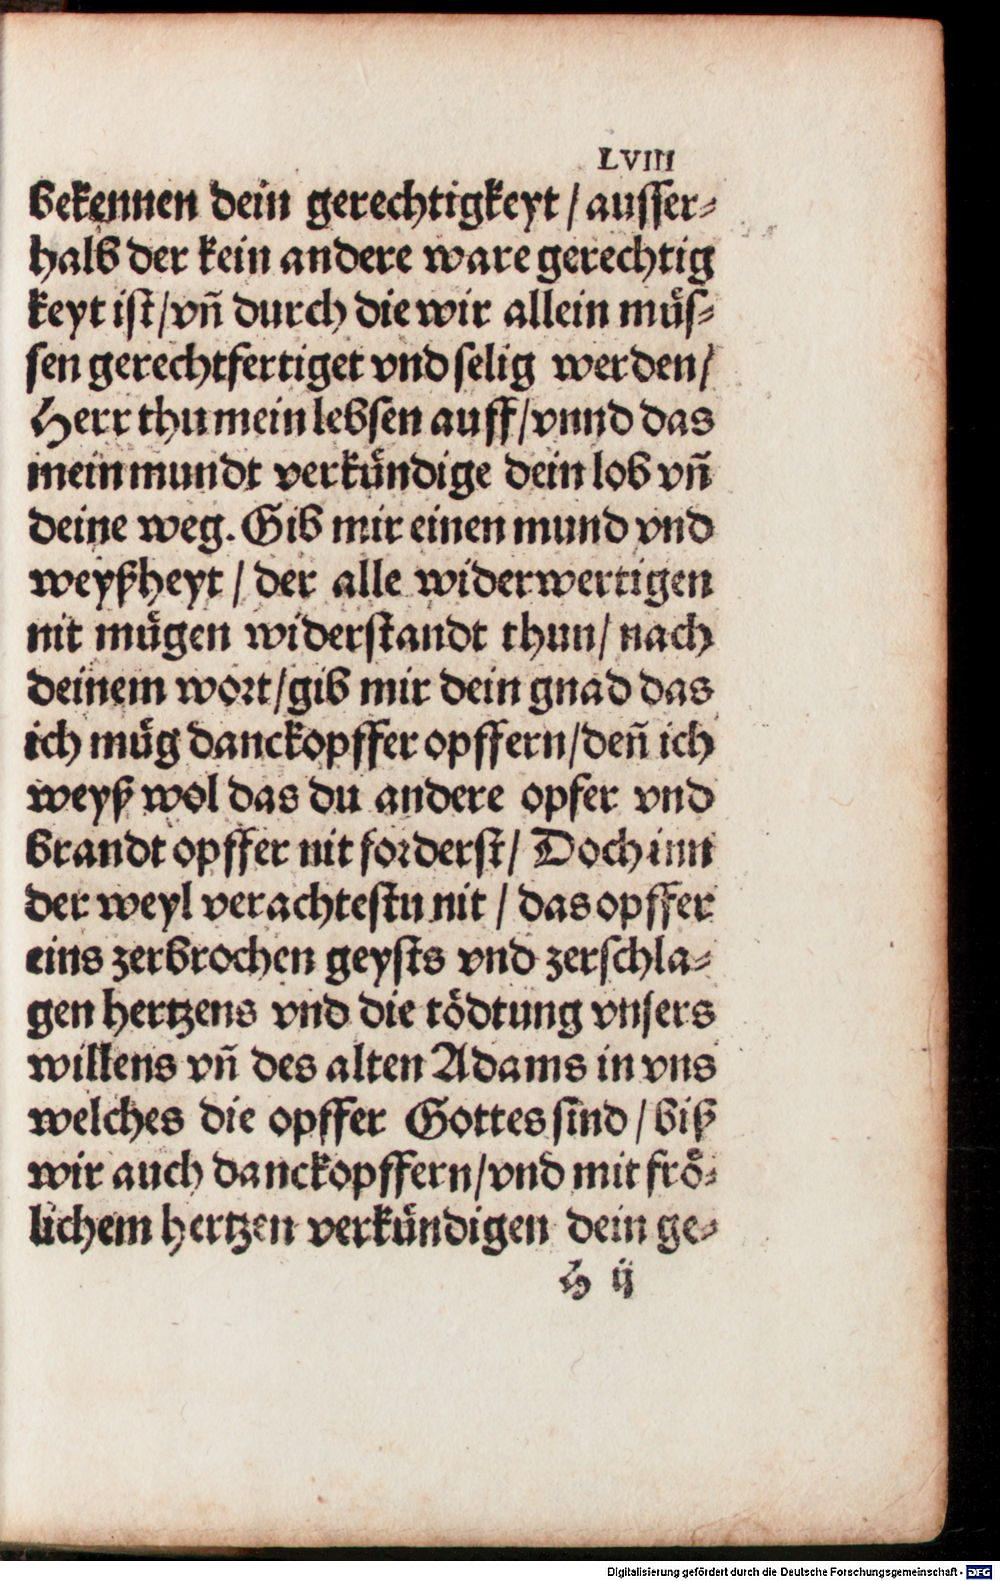 LVIII
bekennen dein gerechtigkeyt / ausser⸗
halb der kein andere ware gerechtig
keyt ist / vñ durch die wir allein müs⸗
sen gerechtfertiget vnd selig werden /
Herr thu mein lebsen auff / vnnd das
mein mundt verkündige dein lob vñ
deine weg. Gib mir einen mund vnd
weyßheyt / der alle widerwertigen
nit mügen widerstandt thun / nach
deinem wort / gib mir dein gnad das
ich müg danckopffer opffern / deñ ich
weyß wol das du andere opfer vnd
brandt opffer nit forderst / Doch inn
der weyl verachtestu nit / das opffer
eins zerbrochen geysts vnd zerschla⸗
gen hertzens vnd die tödtung vnsers
willens vñ des alten Adams in vns
welches die opffer Gottes sind / biß
wir auch danckopffern / vnd mit frö⸗
lichem hertzen verkündigen dein ge⸗
H ij
Digitalisierung gefördert durch die Deutsche Forschungsgemeinschaft - DFG